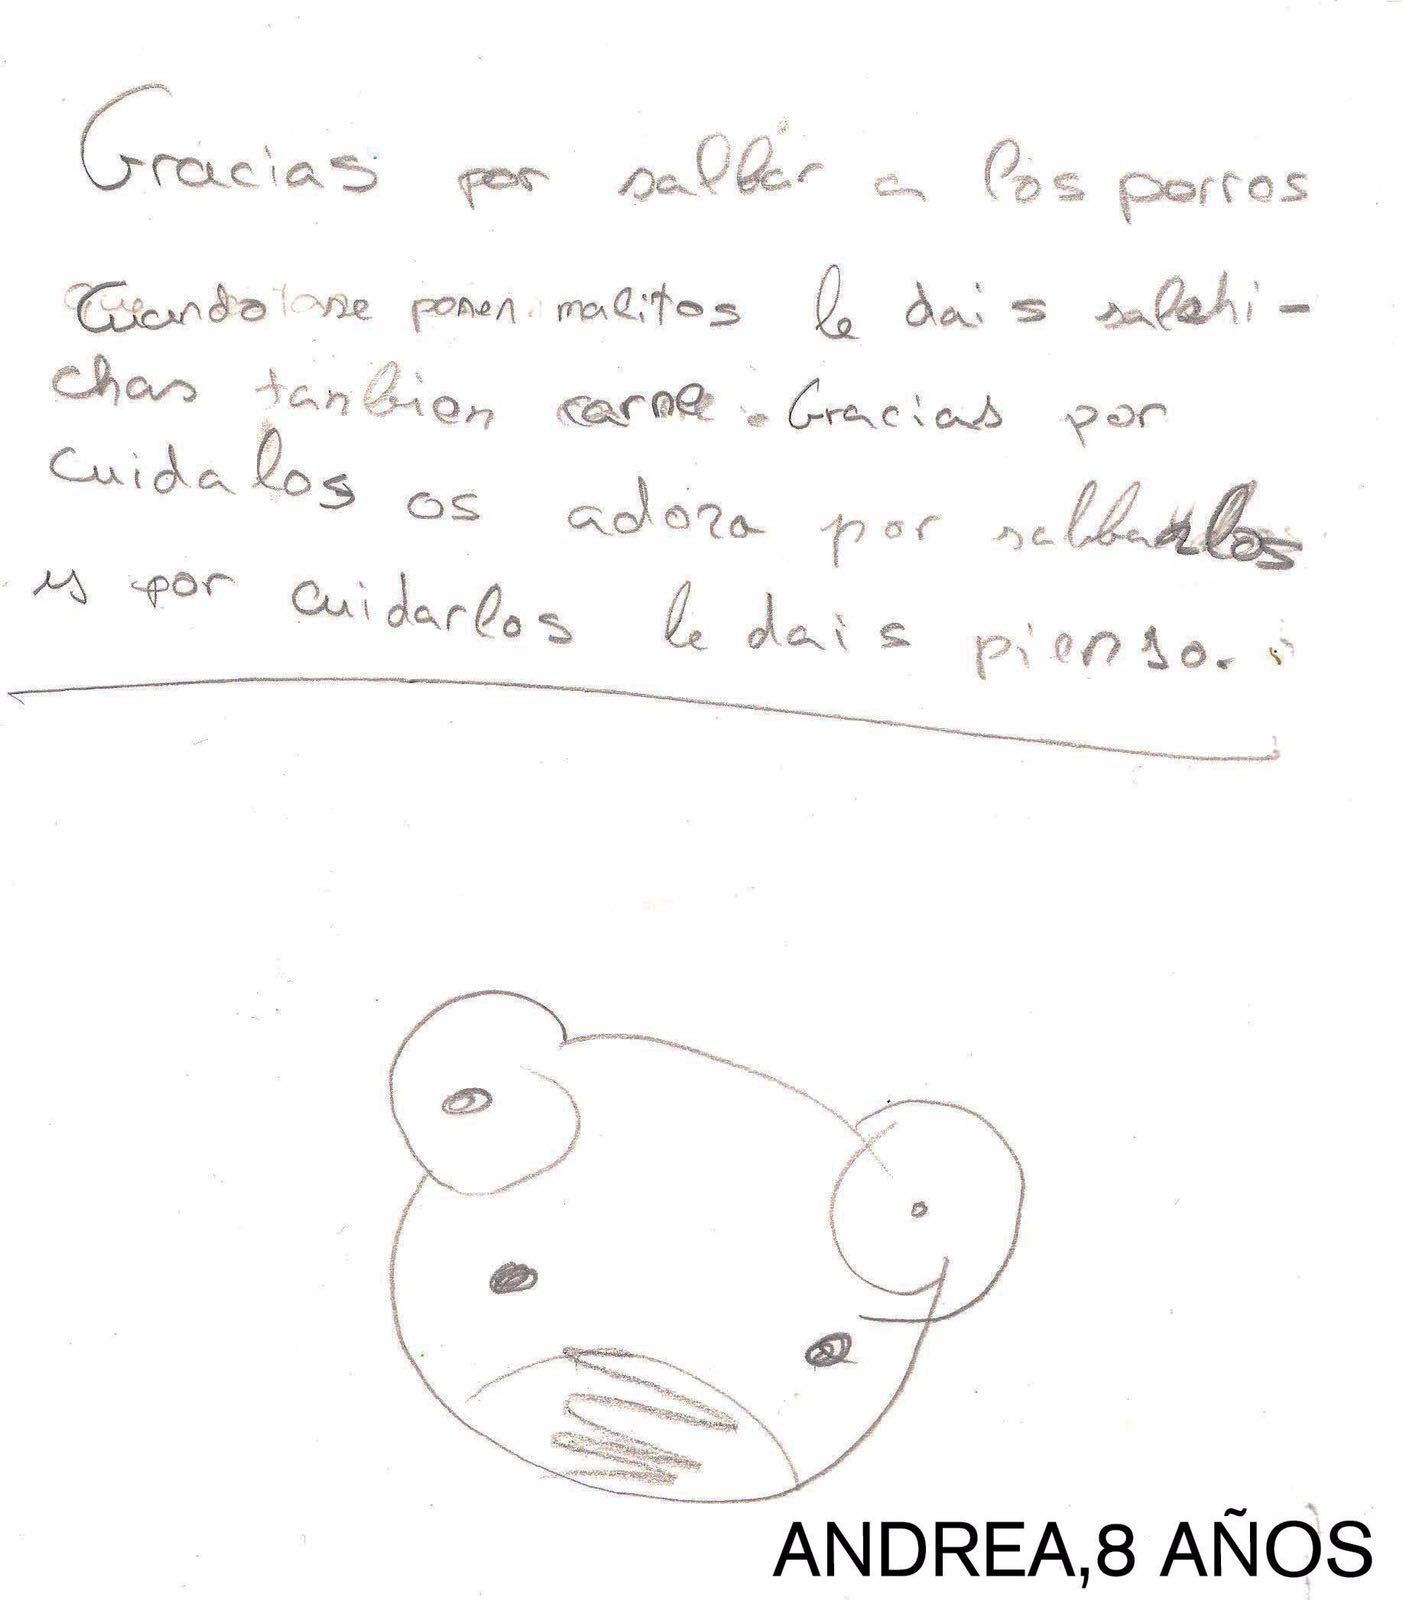 Gracias por salbar a los porros
Cuando se ponen malitos le dais salchi-
chas tanbien carne. Gracias por
cuidalos os adora por salbarlos
y por cuidarlos le dais pienso.
ANDREA,8 AÑOS